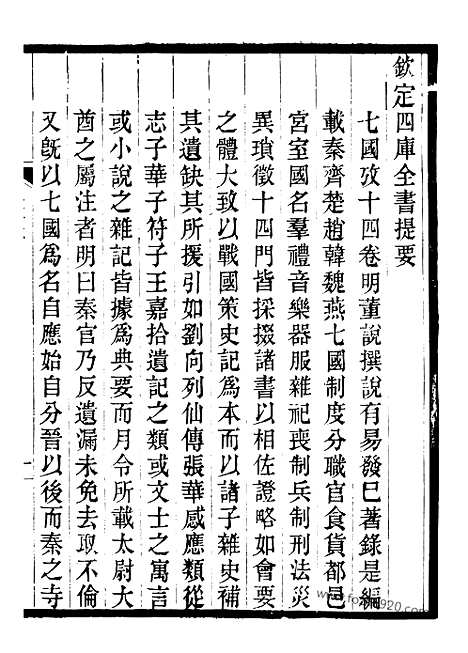 欽定四庫全書提要
七國攷十四卷明董說撰說有易發巳著錄是編
載秦齊楚趙韓魏燕七國制度分職官食貨都邑
宮室國名羣禮音樂器服雜祀喪制兵制刑法災
異瑣徵十四門皆採掇諸書以相佐證略如會要
之體大致以戰國策史記爲本而以諸子雜史補
其遺缺其所援引如劉向列仙傳張華感應類從
志子華子符子王嘉拾遺記之類或文士之寓言
或小說之雜記皆據爲典要而月令所載太尉大
酋之屬注者明曰秦官乃反遺漏未免去取不倫
又旣以七國爲名自應始自分晉以後而秦之寺